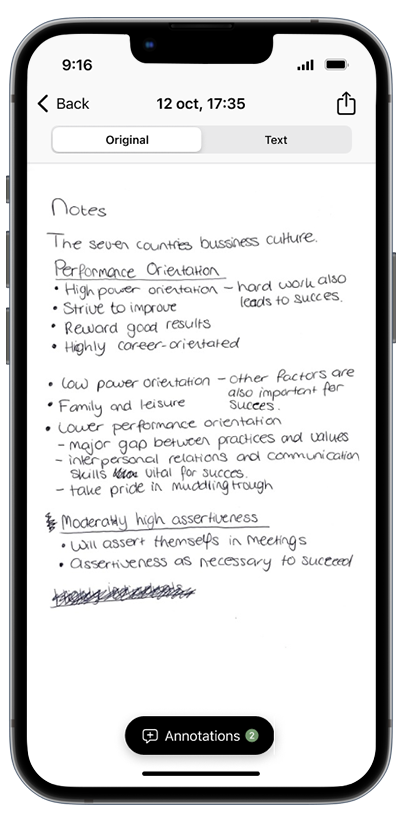 9:16
Back
12 oct, 17:35
Original
Text
Notes
The seven countries bussiness culture.
Performance Orientation
• High power orientation – hard work also
leads to succes.
• Strive to improve
• Reward good results
• Highly career-orientated
• Low power orientation – other factors are
also important for
succes.
• Family and leisure
• Lower performance orientation
– major gap between practices and values
– interpersonal relations and communication
skills vital for succes.
– take pride in muddling trough
Moderatly high assertiveness
• Will assert themselfs in meetings
• Assertiveness as necessary to succeed
Annotations 2